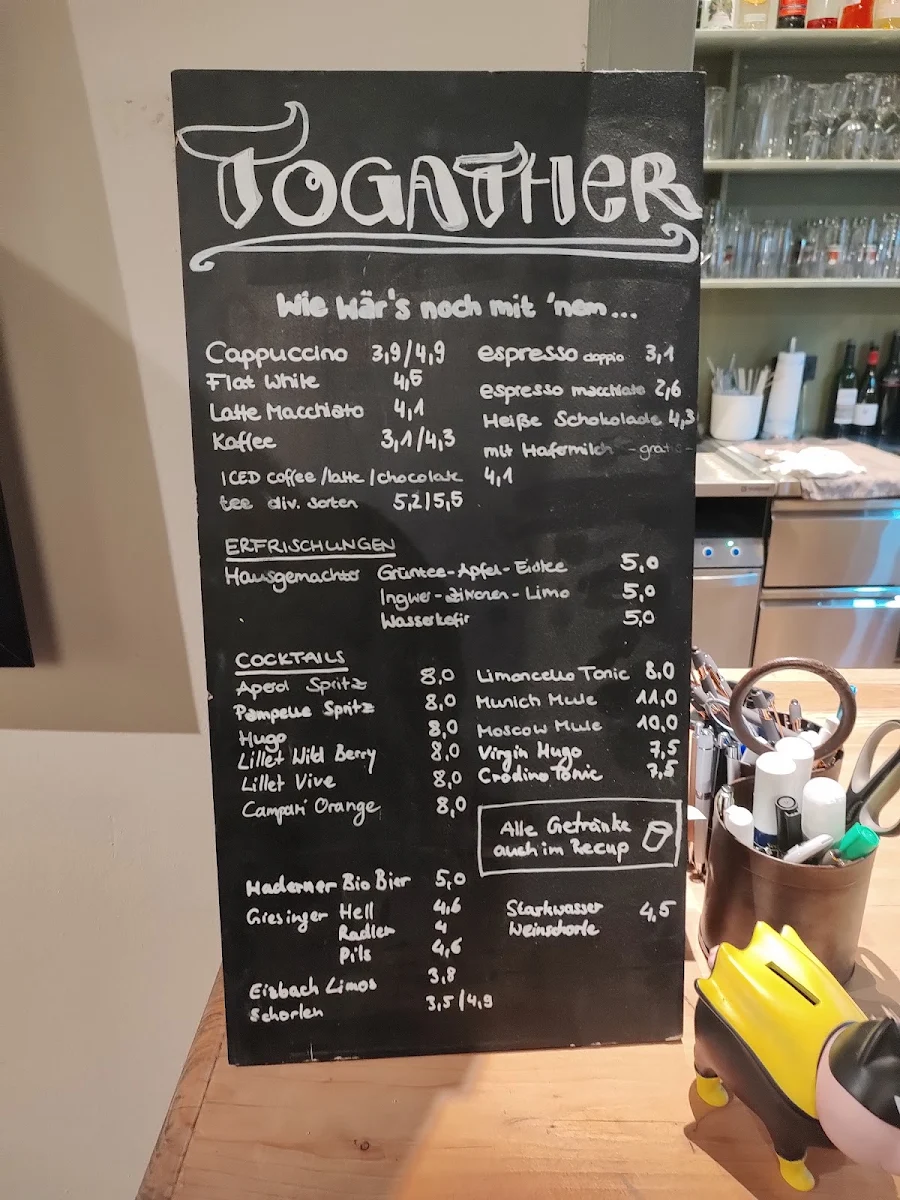 TOGATHER
Wie wär's noch mit 'nem...
Cappuccino 3,9/4,9
Flat White 4,5
Latte Macchiato 4,1
Kaffee 3,1/4,3
espresso doppio 3,1
espresso macchiato 2,6
Heiße Schokolade 4,3
mit Hafermilch - gratis -
ICED coffee/latte/chocolate 4,1
tee div. Sorten 5,2/5,5
ERFRISCHUNGEN
Hausgemachter Grüntee-Apfel-Eistee 5,0
Ingwer-Zitronen-Limo 5,0
Wasserkefir 5,0
COCKTAILS
Aperol Spritz 8,0
Pampelle Spritz 8,0
Hugo 8,0
Lillet Wild Berry 8,0
Lillet Vive 8,0
Campari Orange 8,0
Limoncello Tonic 8,0
Munich Mule 11,0
Moscow Mule 10,0
Virgin Hugo 7,5
Crodino Tonic 7,5
Alle Getränke
auch im Recup
Haderner Bio Bier 5,0
Giesinger Hell 4,6
Radler 4
Pils 4,6
Eisbach Limos 3,8
Schorlen 3,5/4,9
Starkwasser 4,5
Weinschorle